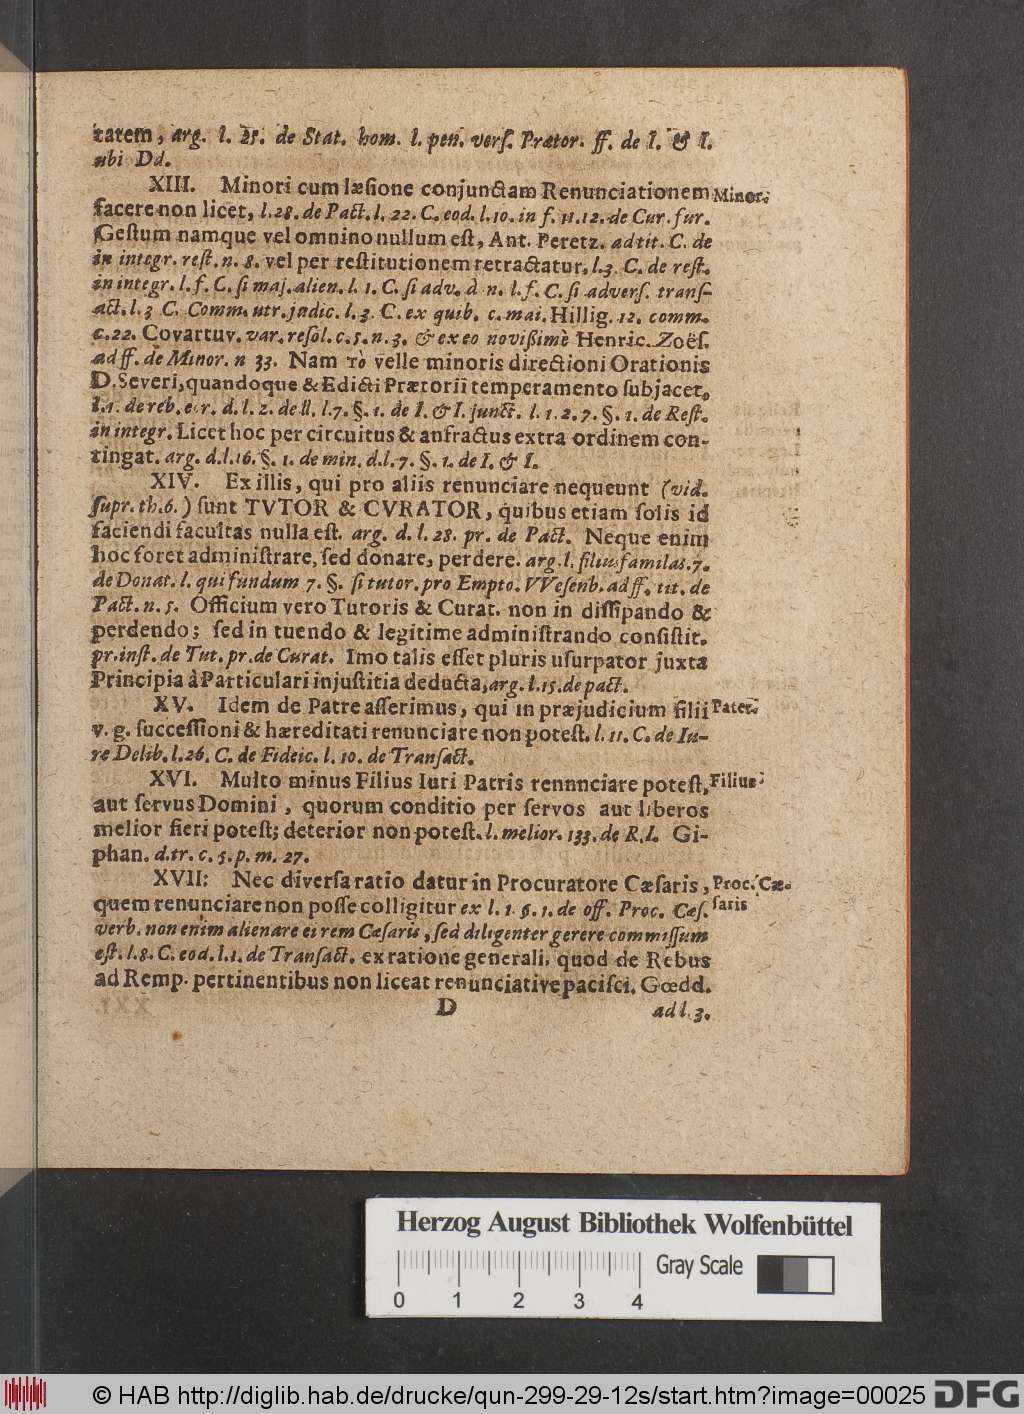 tatem, arg. l. 25. de Stat. hom. l. pen. verſ. Prætor. ff. de I. & I.
ubi Dd.
XIII. Minori cum læſione conjunctam Renunciationem
Minor.
facere non licet, l. 28. de Pact. l. 22. C. eod. l. 10. in f. 11. 12. de Cur. fur.
Geſtum namque vel omnino nullum eſt, Ant. Peretz. ad tit. C. de
in integr. reſt. n. 8. vel per reſtitutionem retractatur. l. 3. C. de reſt.
in integr. l. f. C. ſi maj. alien. l. 1. C. ſi adv. d n. l. f. C. ſi adverſ. tranſ-
act. l. 3 C. Comm. utr. judic. l. 3. C. ex quib. c. mai. Hillig. 12. comm.
c. 22. Covartuv. var. reſol. c. 5. n. 3. & ex eo novißimè Henric. Zoëſ.
ad ff. de Minor. n 33. Nam τὸ velle minoris directioni Orationis
D. Severi, quandoque & Edicti Prætorii temperamento ſubjacet,
l. 1. de reb. eor. d. l. 2. de ll. l. 7. §. 1. de I. & I. junct. l. 1. 2. 7. §. 1. de Reſt.
in integr. Licet hoc per circuitus & anfractus extra ordinem con-
tingat. arg. d. l. 16. §. 1. de min. d. l. 7. §. 1. de I. & I.
XIV. Ex illis, qui pro aliis renunciare nequeunt (vid.
ſupr. th. 6.) ſunt TVTOR & CVRATOR, quibus etiam ſolis id
faciendi facultas nulla eſt. arg. d. l. 28. pr. de Pact. Neque enim
hoc foret adminiſtrare, ſed donare, perdere. arg. l. filiusfamilas. 7.
de Donat. l. qui fundum 7. §. ſi tutor. pro Empto. VVeſenb. ad ff. tit. de
Pact. n. 5. Officium vero Tutoris & Curat. non in diſſipando &
perdendo; ſed in tuendo & legitime adminiſtrando conſiſtit.
pr. inſt. de Tut. pr. de Curat. Imo talis eſſet pluris uſurpator juxta
Principia à Particulari injuſtitia deducta, arg. l. 15. de pact.
XV. Idem de Patre aſſerimus, qui in præjudicium filii
Pater.
v. g. ſucceſſioni & hæreditati renunciare non poteſt. l. 11. C. de Iu-
re Delib. l. 26. C. de Fideic. l. 10. de Tranſact.
XVI. Multo minus Filius Iuri Patris rennnciare poteſt,
Filius
aut ſervus Domini, quorum conditio per ſervos aut liberos
melior fieri poteſt; deterior non poteſt. l. melior. 133. de R. I. Gi-
phan. d. tr. c. 5. p. m. 27.
XVII: Nec diverſa ratio datur in Procuratore Cæſaris,
Proc. Cæ-
quem renunciare non poſſe colligitur ex l. 1. §. 1. de off. Proc. Cæſ.
ſaris
verb. non enim alienare ei rem Cæſaris, ſed diligenter gerere commiſſum
eſt. l. 8. C. eod. l. 1. de Tranſact. ex ratione generali, quod de Rebus
ad Remp. pertinentibus non liceat renunciative paciſci. Gœdd.
D
ad l. 3.
Herzog August Bibliothek Wolfenbüttel
Gray Scale
0 1 2 3 4
© HAB http://diglib.hab.de/drucke/qun-299-29-12s/start.htm?image=00025
DFG